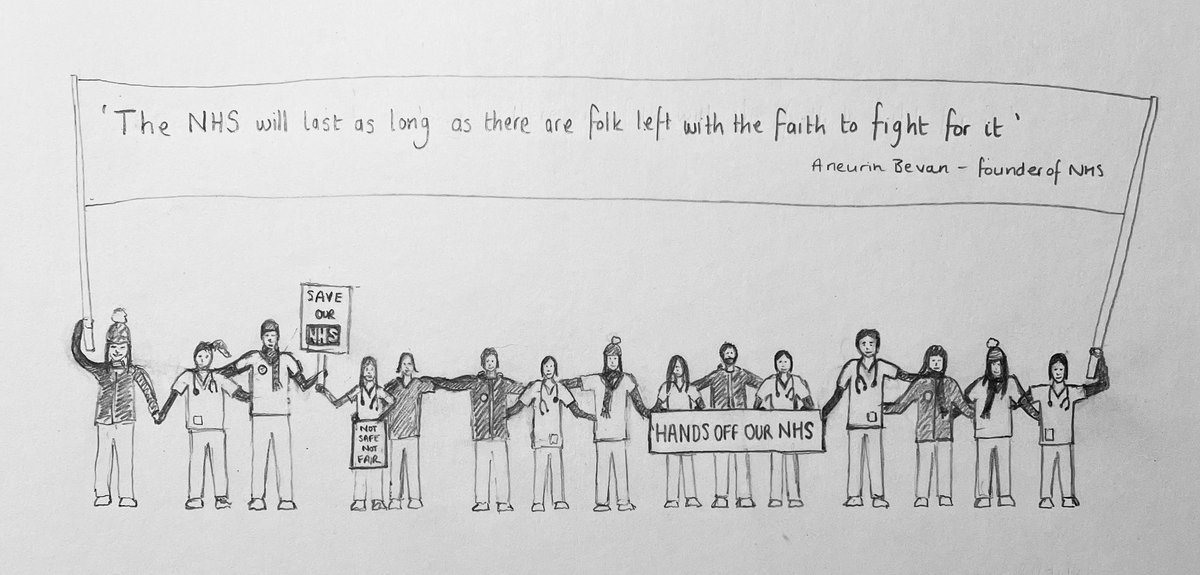 'The NHS will last as long as there are folk left with the faith to fight for it'
Aneurin Bevan - founder of NHS
SAVE
OUR
NHS
NOT
SAFE
NOT
FAIR
HANDS OFF OUR NHS